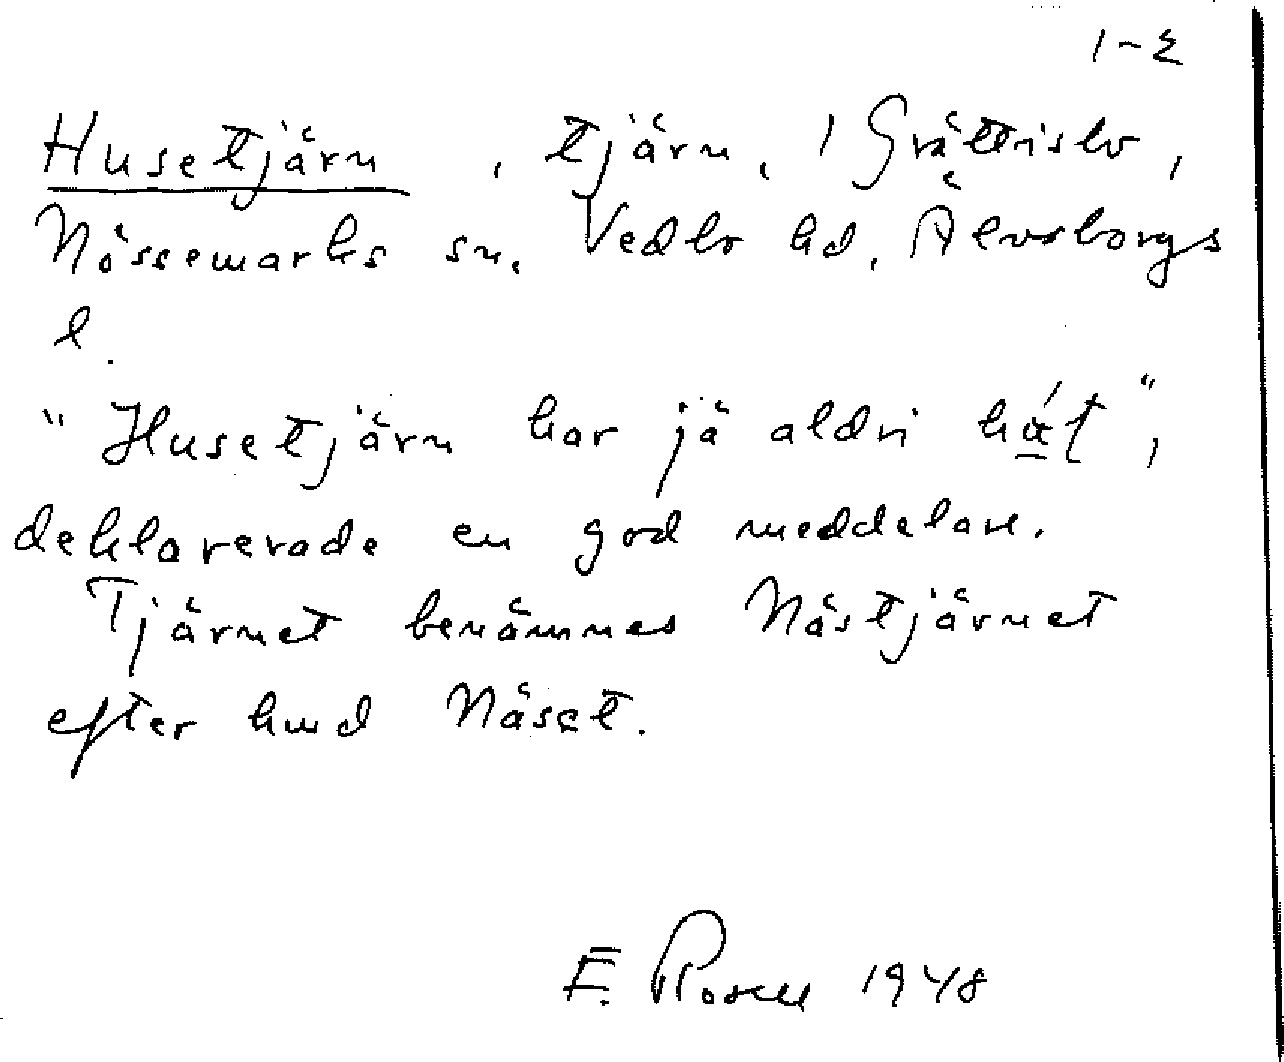 1-2
Husetjärn, tjärn, 1 Grättvik,
Nössemarks sn, Vedbo hd, Älvsborgs
l.
"Husetjärn har jä aldri hat",
deklarerade en god meddelare.
Tjärnet benämnes Nästjärnet
efter hmd Näset.
E. Rosell 1948